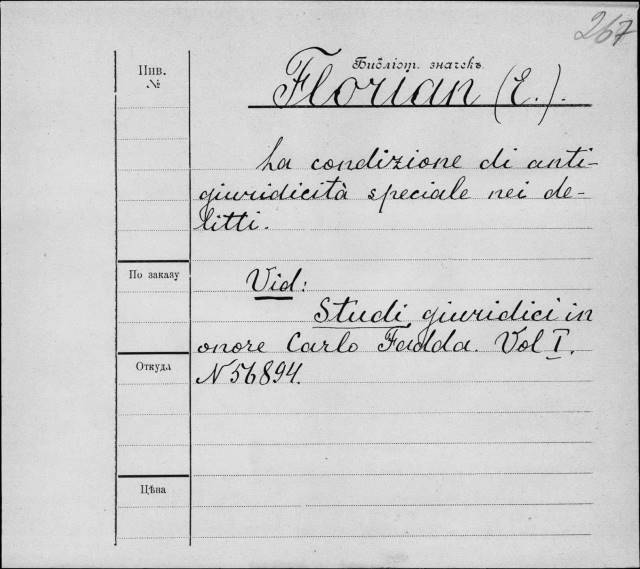 267
Инв.
№
Библіот. значекъ
Florian (E.).
La condizione di anti-
giuridicità speciale nei de-
litti.
По заказу
Vid:
Studi giuridici in
onore Carlo Fadda. Vol I.
Откуда
N 56894.
Цѣна